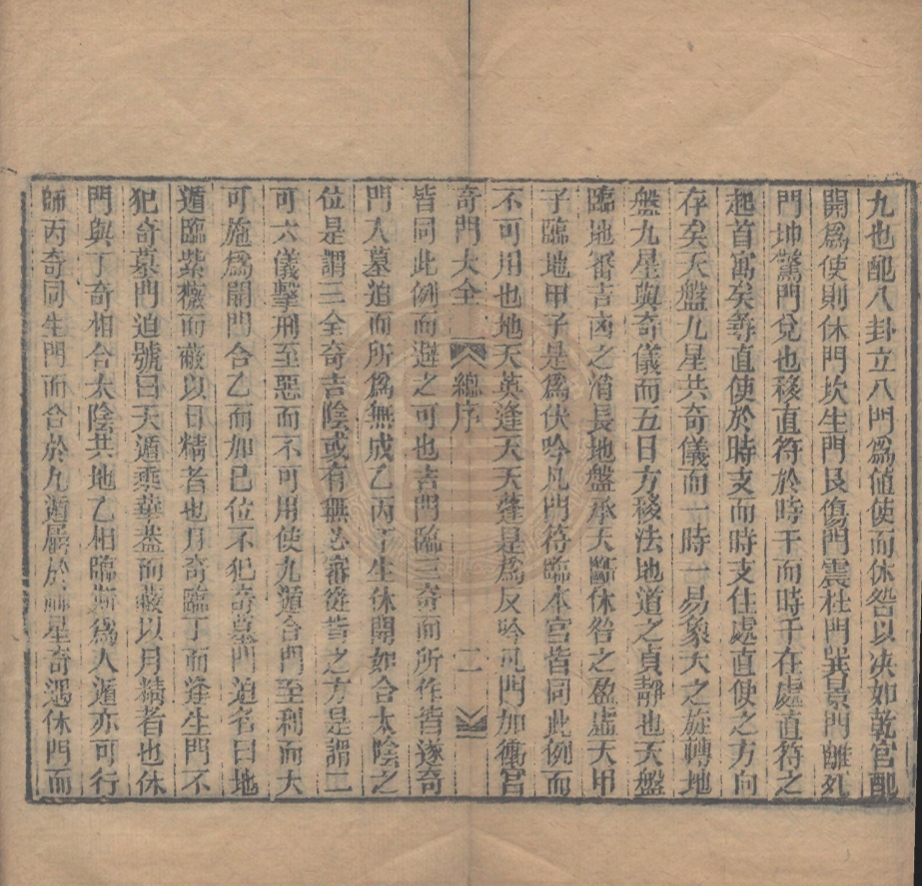 九也配八卦立八門爲値使而休咎以决如乾宫配
開爲使則休門坎生門艮傷門震杜門巽景門離死
門坤驚門兌也移直符於時干而時干在處直符之
起首寓矣尋直使於時支而時支住處直使之方向
存矣天盤九星共奇儀而一時一易象天之旋轉地
盤九星與奇儀而五日方移法地道之貞靜也天盤
臨地審吉凶之消長地盤承天斷休咎之盈虛天甲
子臨地甲子是爲伏吟凡門符臨本宫皆同此例而
不可用也地天英逢天天蓬是爲反吟凡門加衝宫
奇門大全 總序 二
皆同此例而避之可也吉門臨三奇而所作皆遂奇
門入墓迫而所爲無成乙丙丁生休開如合太陰之
位是謂三全奇吉陰或有無必審從皆之方是謂二
可六儀擊刑至惡而不可用使九遁合門至利而大
可施爲開門合乙而如巳位不犯奇墓門迫名曰地
遁臨紫薇而蔽以日精者也月奇臨丁而逢生門不
犯奇墓門迫號曰天遁乘華葢而蔽以月精者也休
門與丁奇相合太陰共地乙相臨斯爲人遁亦可行
師丙奇同生門而合於九遁嚴於 星奇遇休門而